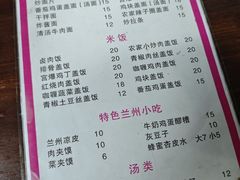 炒面片
番茄鸡蛋盖面（面
干拌面
炸酱面
清汤牛肉面
农家
鸡块盖面（面）
农家辣子面
炒拉条
米饭
卤肉饭 20
排骨盖饭 20
宫爆鸡丁盖饭 20
红烧肉盖饭 20
咖喱蔬菜盖饭 18
青椒土豆丝盖饭 18
农家小炒肉盖饭 20
青椒肉丝盖饭 20
咖喱鸡肉盖饭 20
鸡块盖饭 20
番茄鸡蛋盖饭 18
特色兰州小吃
兰州凉皮 10
肉夹馍 15
菜夹馍 6
牛奶鸡蛋醪糟 15
灰豆子 10
蜂蜜杏皮水 大7 小5
汤类